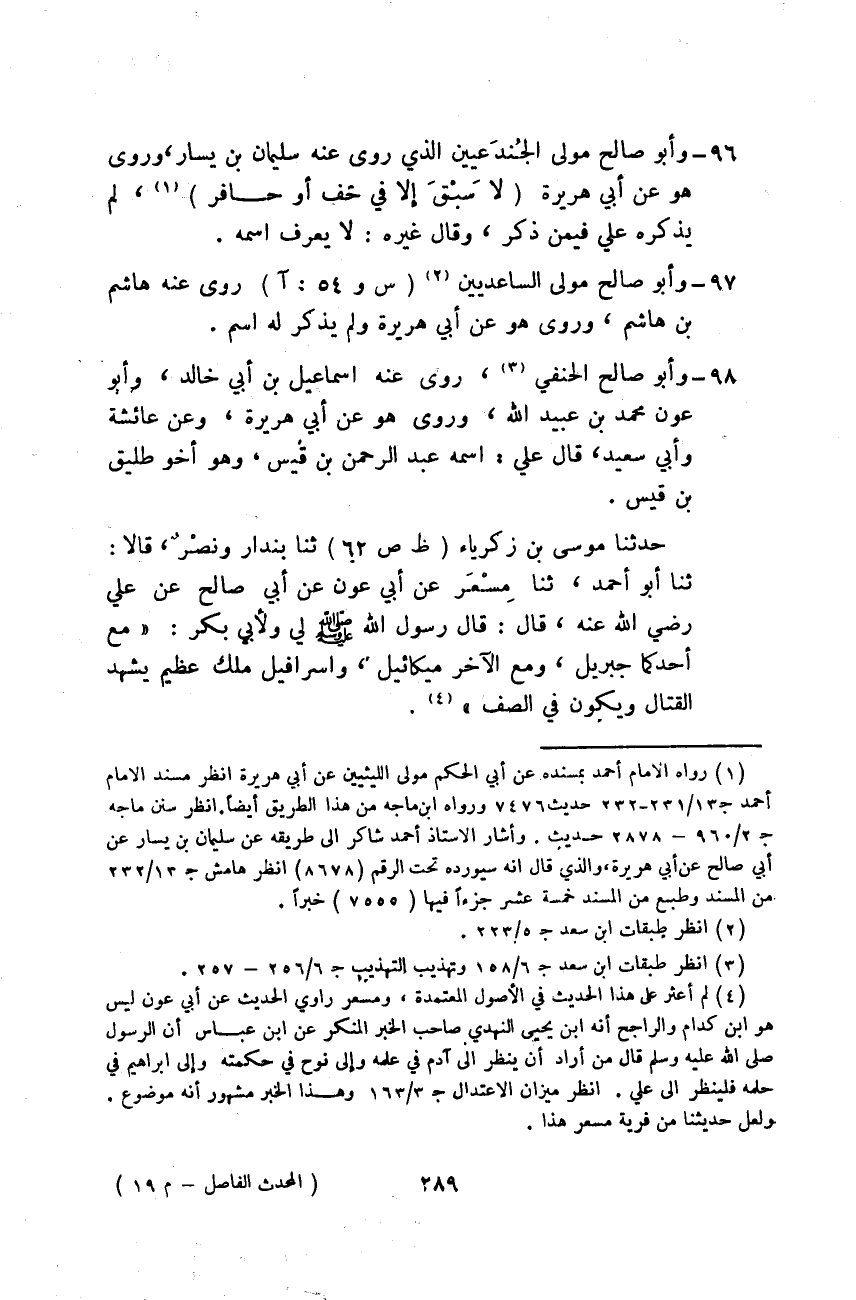 ٩٦ - وأبو صالح مولى الجُندَعيين الذي روى عنه سليمان بن يسار، وروى
هو عن أبي هريرة ( لا سَبْقَ إلا في خف أو حافر ) (١) ، لم
يذكره علي فيمن ذكر ، وقال غيره : لا يعرف اسمه .
٩٧ - وأبو صالح مولى الساعديين (٢) ( س و ٥٤ : آ ) روى عنه هاشم
بن هاشم ، وروى هو عن أبي هريرة ولم يذكر له اسم .
٩٨ - وأبو صالح الحنفي (٣) ، روى عنه اسماعيل بن أبي خالد ، وأبو
عون محمد بن عبيد الله ، وروى هو عن أبي هريرة ، وعن عائشة
وأبي سعيد، قال علي : اسمه عبد الرحمن بن قيس ، وهو أخو طليق
بن قيس .
حدثنا موسى بن زكرياء ( ظ ص ٦٢ ) ثنا بندار ونصْرٌ، قالا :
ثنا أبو أحمد ، ثنا مِسْعَر عن أبي عون عن أبي صالح عن علي
رضي الله عنه ، قال : قال رسول الله ﷺ لي ولأبي بكر : « مع
أحدكما جبريل ، ومع الآخر ميكائيل ، واسرافيل ملك عظيم يشهد
القتال ويكون في الصف » (٤) .
(١) رواه الامام أحمد بسنده عن أبي الحكم مولى الليثيين عن أبي هريرة انظر مسند الامام
أحمد ج٢٣١/١٣-٢٣٢ حديث ٧٤٧٦ ورواه ابن ماجه من هذا الطريق أيضاً. انظر سنن ماجه
ج ٩٦٠/٢ – ٢٨٧٨ حديث . وأشار الاستاذ أحمد شاكر الى طريقه عن سليمان بن يسار عن
أبي صالح عن أبي هريرة، والذي قال انه سيورده تحت الرقم (٨٦٧٨) انظر هامش ج ٢٣٢/١٣
من المسند وطبع من المسند خمسة عشر جزءاً فيها ( ٧٥٥٥ ) خبراً .
(٢) انظر طبقات ابن سعد ج ٢٢٣/٥ .
(٣) انظر طبقات ابن سعد ج ١٥٨/٦ وتهذيب التهذيب ج ٢٥٦/٦ – ٢٥٧ .
(٤) لم أعثر على هذا الحديث في الأصول المعتمدة ، ومسعر راوي الحديث عن أبي عون ليس
هو ابن كدام والراجح أنه ابن يحيى النهدي صاحب الخبر المنكر عن ابن عباس أن الرسول
صلى الله عليه وسلم قال من أراد أن ينظر الى آدم في علمه وإلى نوح في حكمته وإلى ابراهيم في
حلمه فلينظر الى علي . انظر ميزان الاعتدال ج ١٦٣/٣ وهذا الخبر مشهور أنه موضوع .
ولعل حديثنا من فرية مسعر هذا .
٢٨٩ ( المحدث الفاصل – م ١٩ )